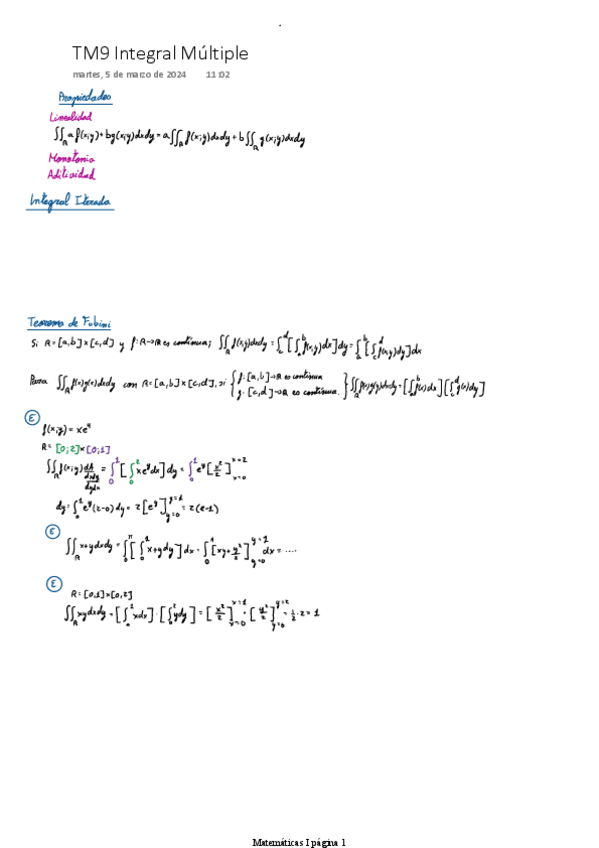 TM9 Integral Múltiple
martes, 5 de marzo de 2024 11:02
Propiedades
Linealidad
∬_R a f(x;y)+bg(x;y)dxdy = a∬_R f(x;y)dxdy + b∬_R g(x;y)dxdy
Monotonia
Aditividad
Integral Iterada
Teorema de Fubini
Si R=[a,b]x[c,d] y f:R→R es continua; ∬_R f(x,y)dxdy = ∫_c^d [∫_a^b f(x,y)dx]dy = ∫_a^b [∫_c^d f(x,y)dy]dx
∬_R f(x)g(y)dxdy con R=[a,b]x[c,d], si { f:[a,b]→R es continua
g:[c,d]→R es continua. } ∬_R f(x)g(y)dxdy = [∫_a^b f(x)dx][∫_c^d g(y)dy]
E
f(x;y) = xe^y
R = [0;2]x[0;1]
∬_R f(x;y) dA = ∫_0^1 [∫_0^2 xe^y dx] dy = ∫_0^1 e^y [x²/2]_{x=0}^{x=2}
dxdy
dydx
dy = ∫_0^1 e^y(2-0)dy = 2[e^y]_{y=0}^{y=1} = 2(e-1)
E
∬_R x+y dxdy = ∫_0^1 [xy + y²/2]_{y=0}^{y=1} dx = ....
E
R = [0,1]x[0,2]
∬_R xy dxdy = [∫_0^1 xdx]·[∫_0^2 ydy] = [x²/2]_{x=0}^{x=1} · [y²/2]_{y=0}^{y=2} = 1/2·2 = 1
Matemáticas I página 1